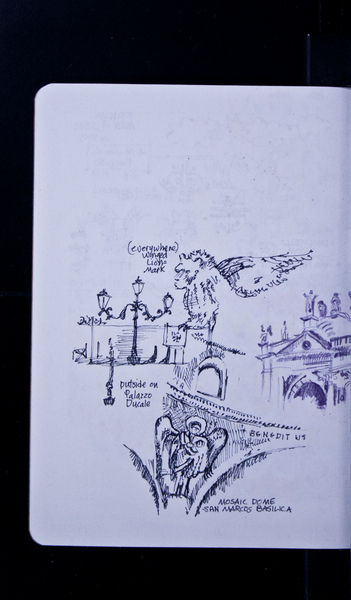 (everywhere)
Winged
Lion
Mark
outside on
Palazzo
Ducale
BENEDIT US
MOSAIC DOME
SAN MARCOS BASILICA